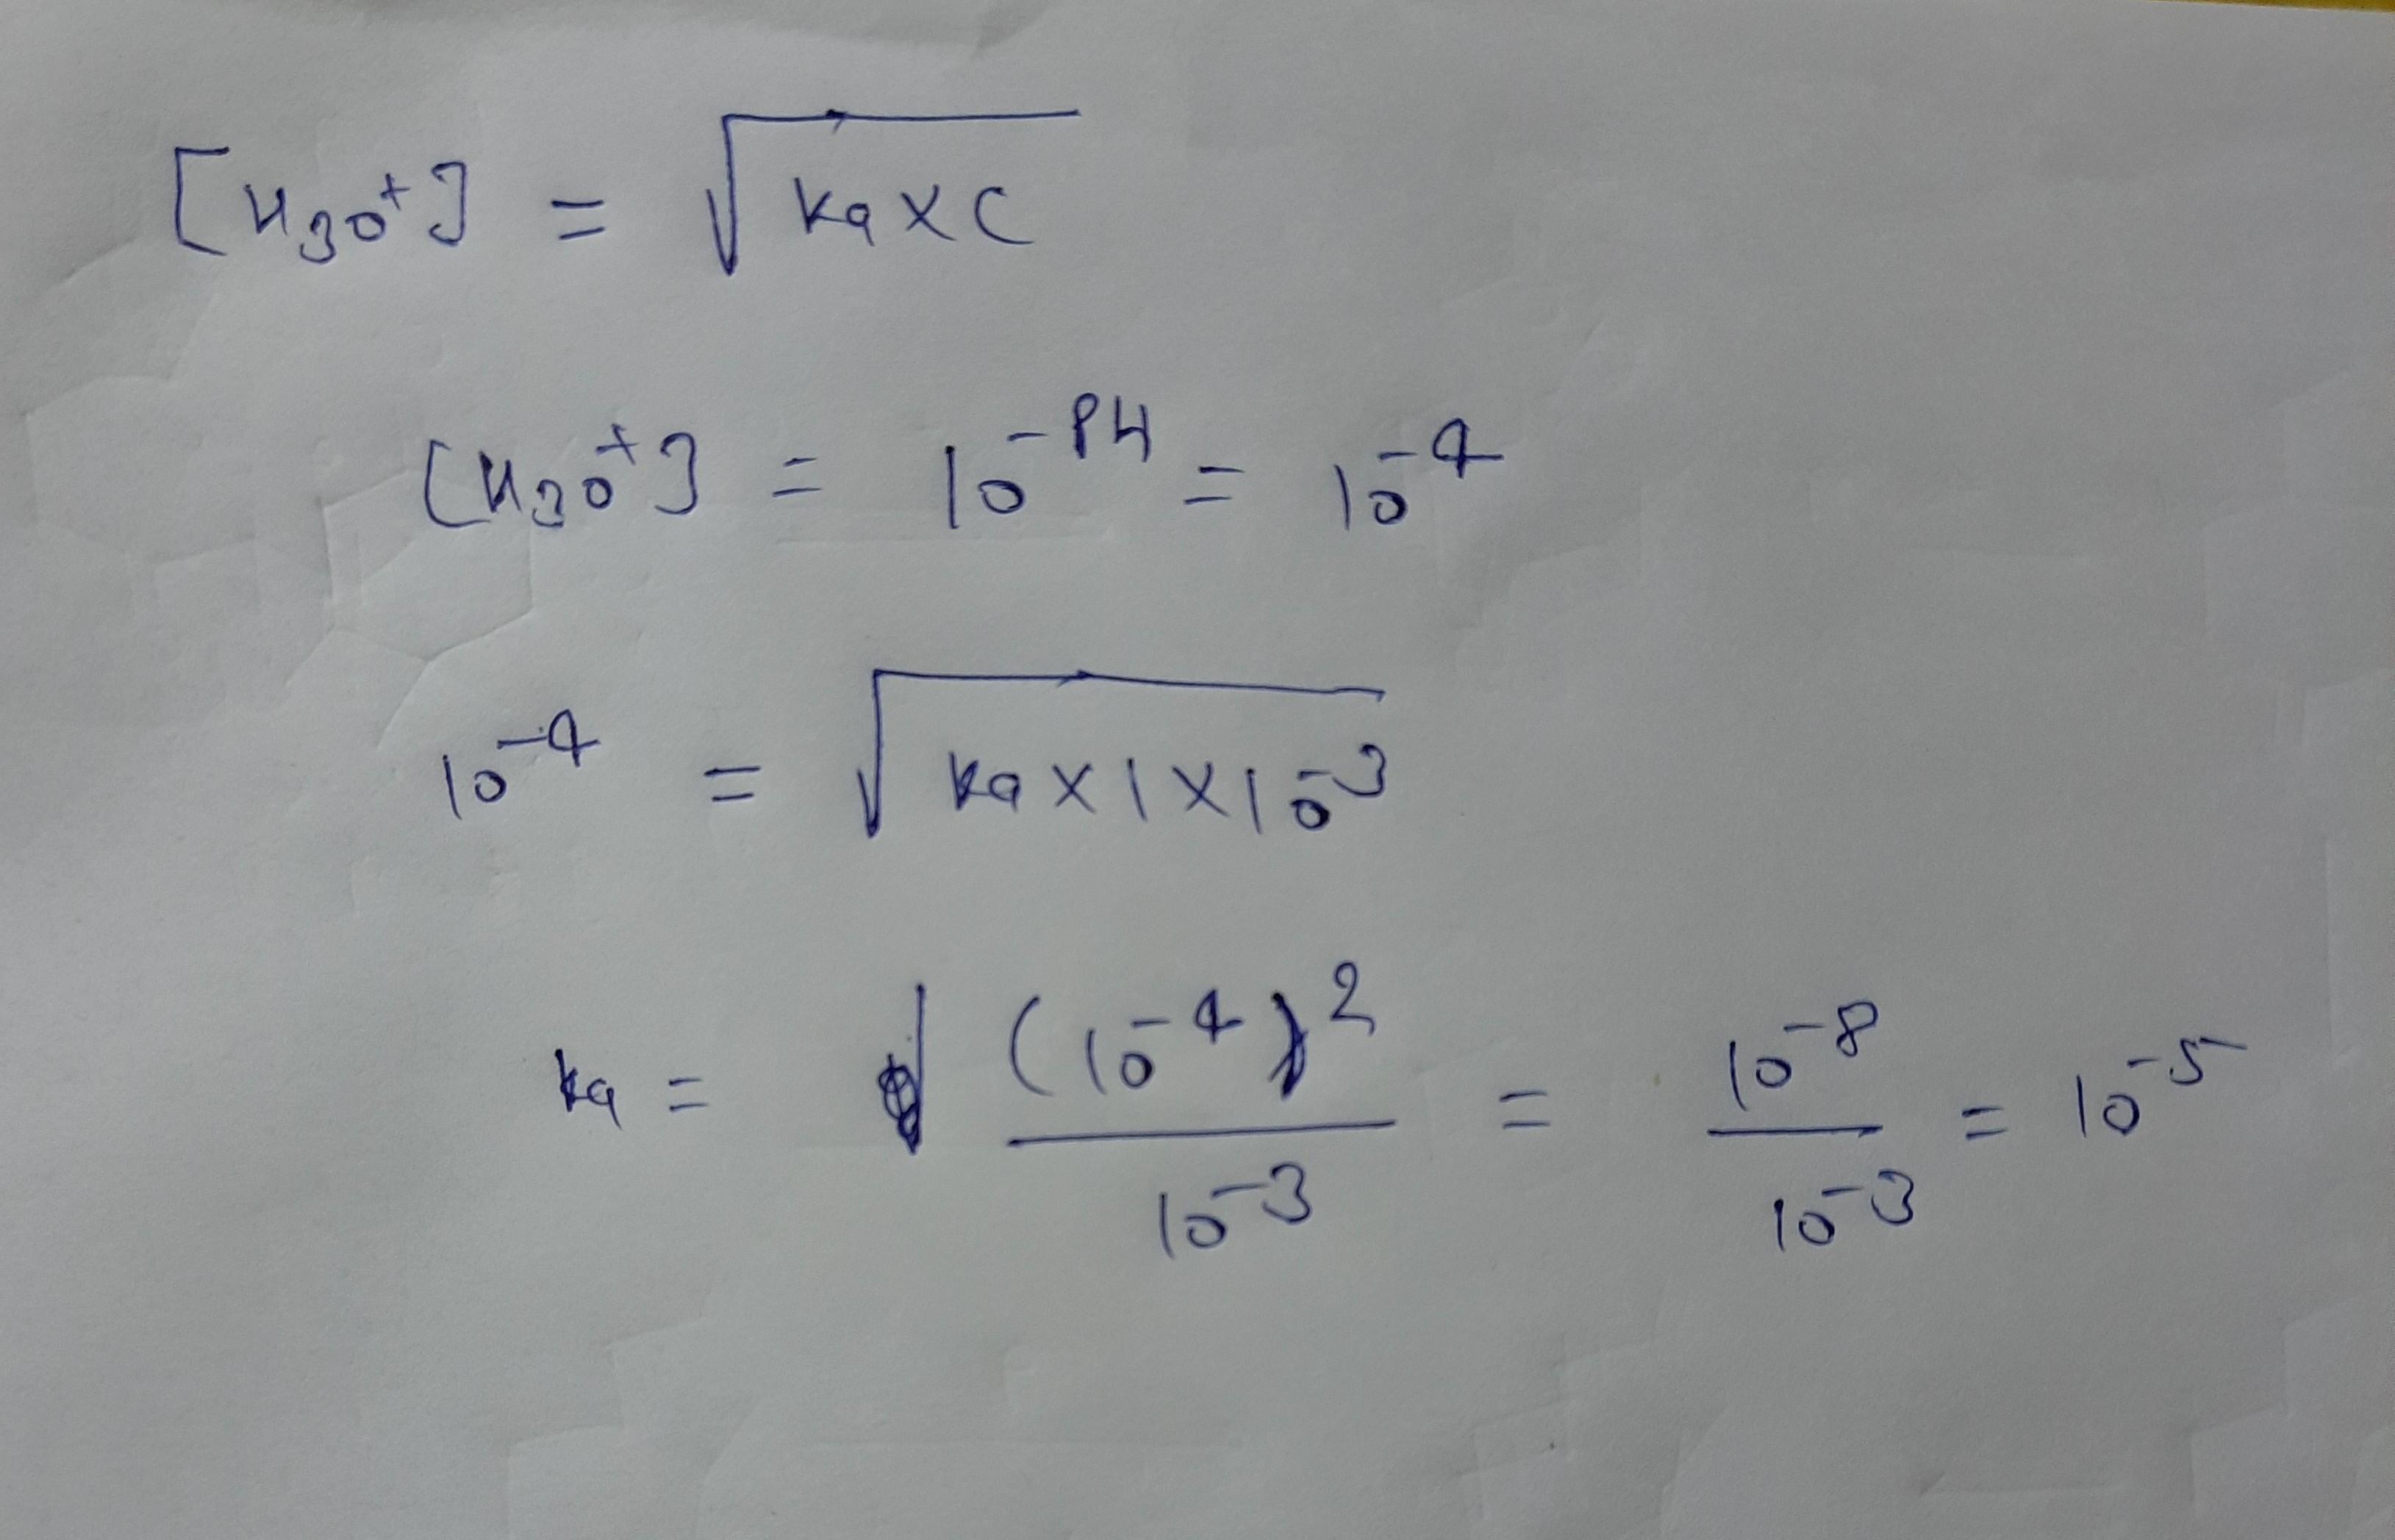 [H₃O⁺] = √ka×C
[H₃O⁺] = 10⁻ᴾᴴ = 10⁻⁴
10⁻⁴ = √ka×1×10⁻³
ka = (10⁻⁴)² / 10⁻³ = 10⁻⁸ / 10⁻³ = 10⁻⁵